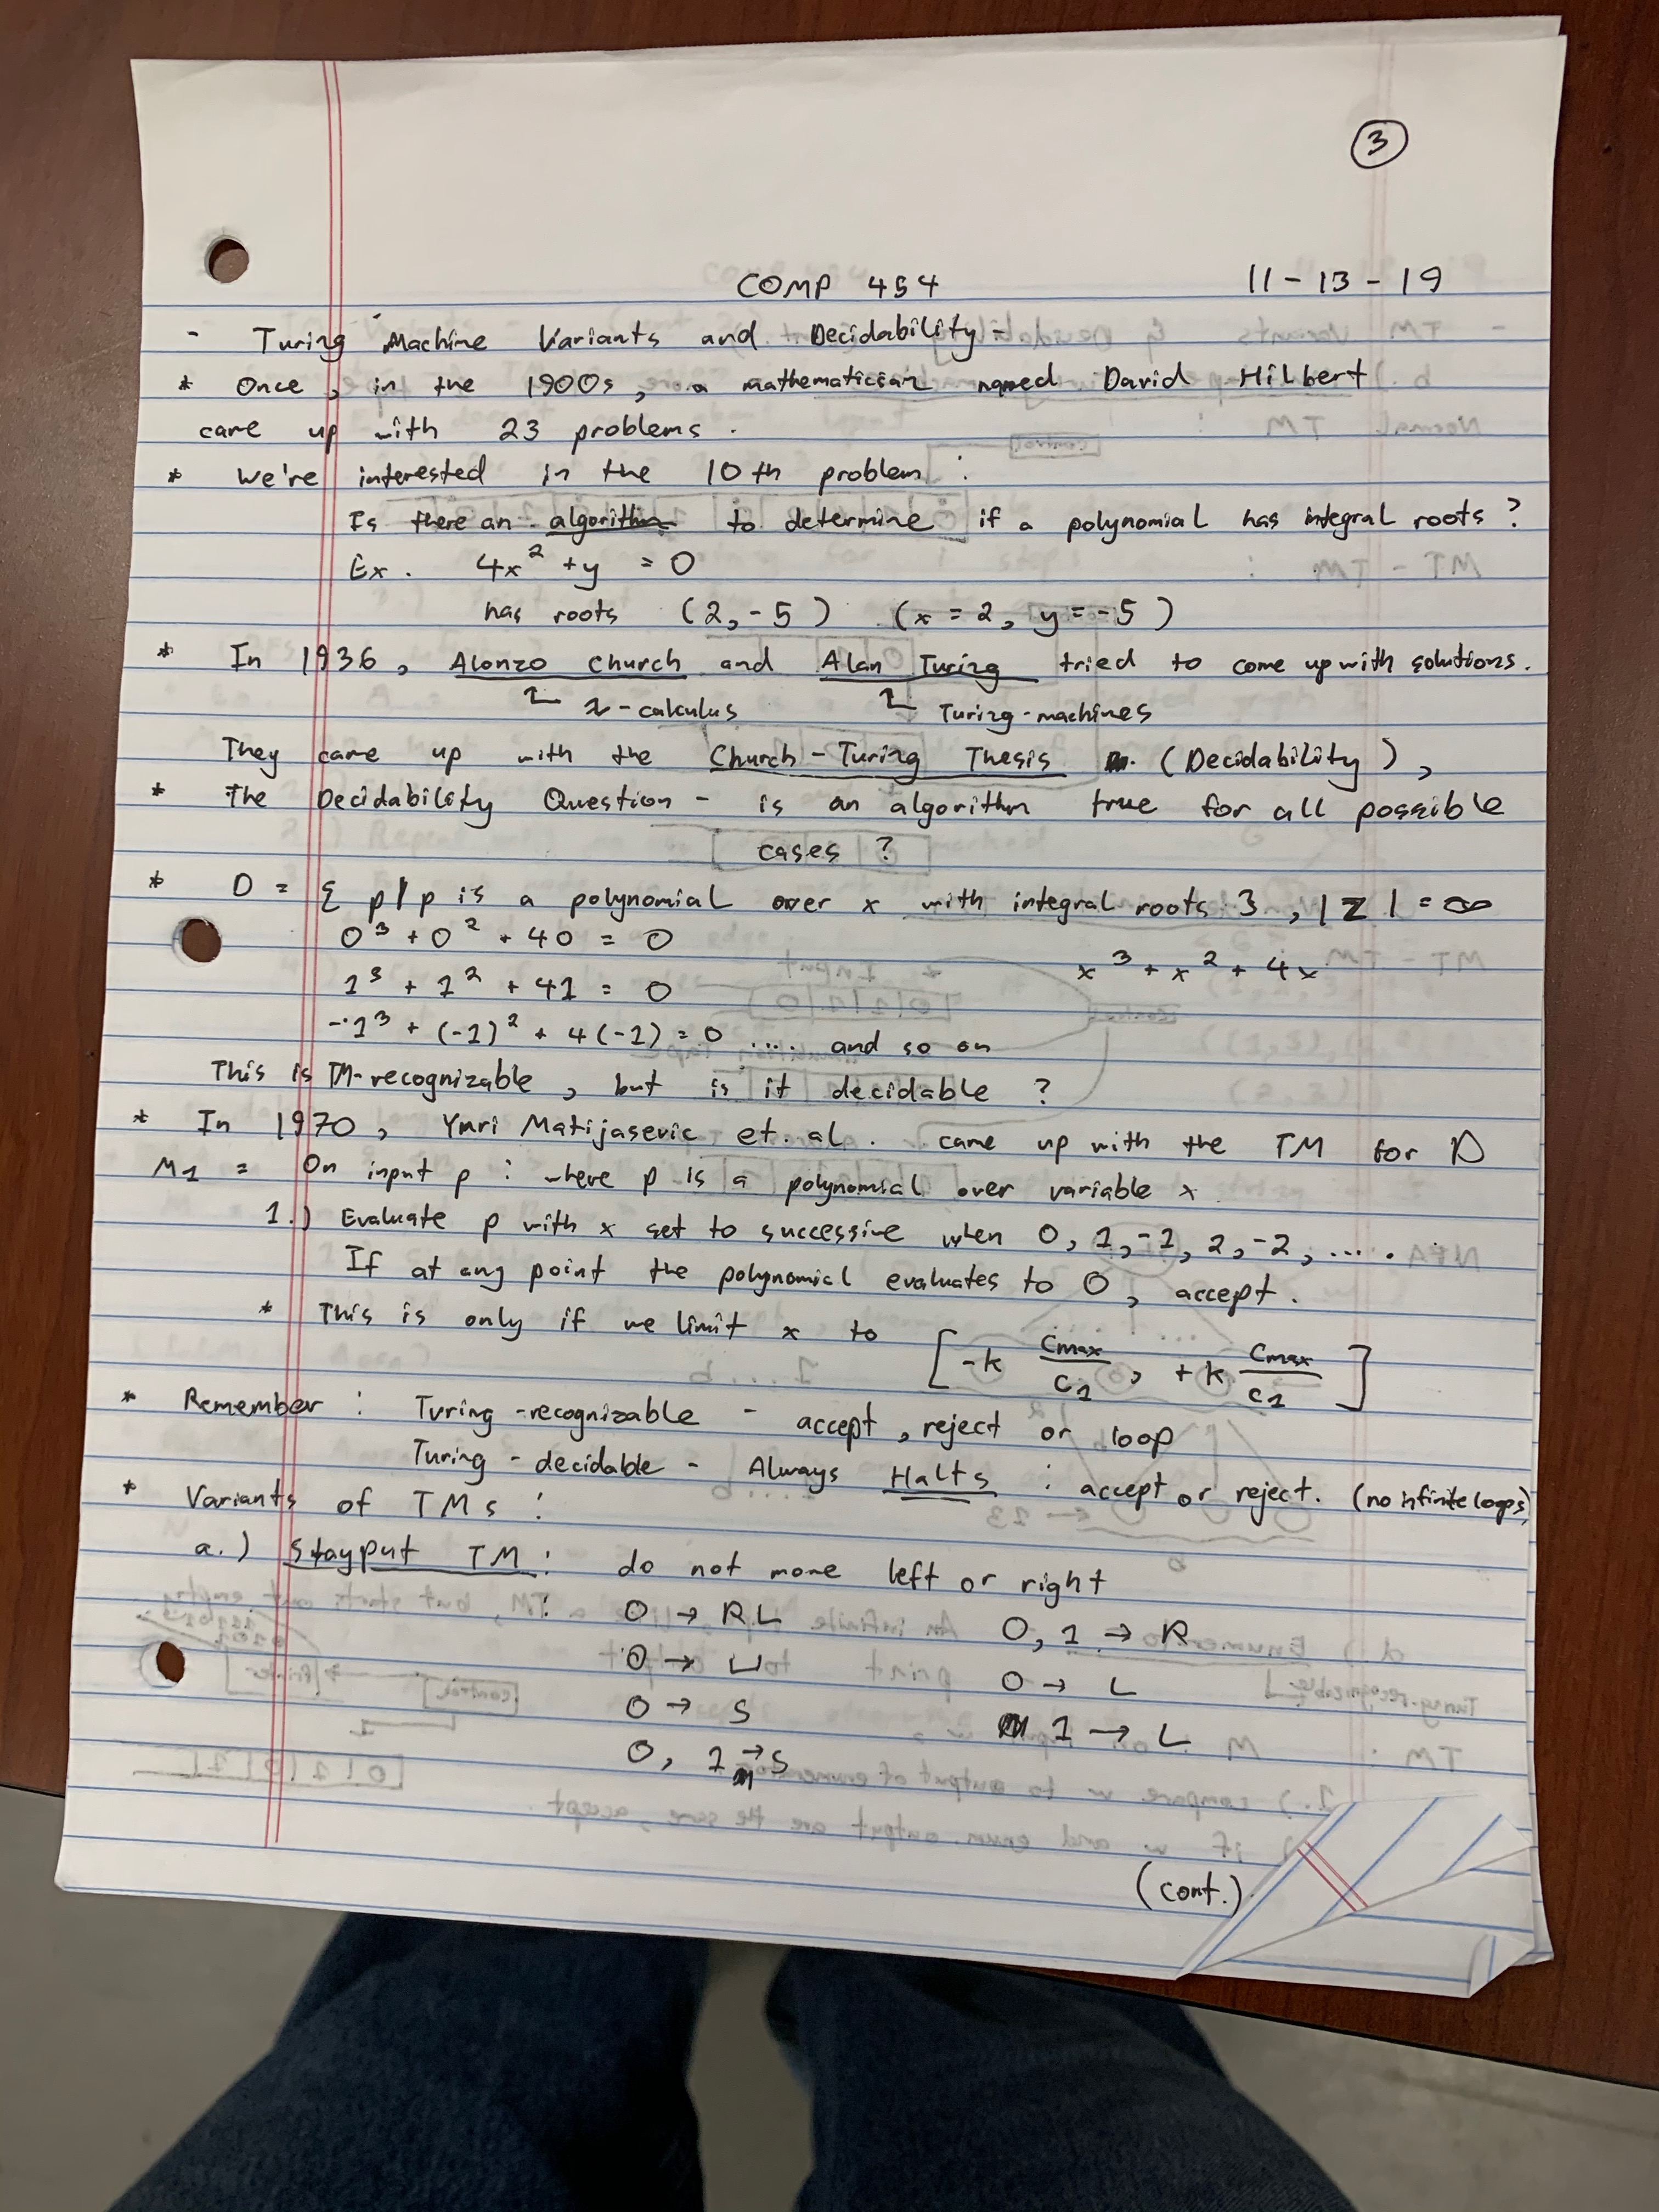 3
COMP 454 11-13-19
- Turing Machine Variants and Decidability -
* Once, in the 1900s, a mathematician named David Hilbert
came up with 23 problems.
* We're interested in the 10th problem:
Is there an algorithm to determine if a polynomial has integral roots?
Ex. 4x² + y = 0
has roots (2, -5) (x = 2, y = -5)
* In 1936, Alonzo Church and Alan Turing tried to come up with solutions.
λ-calculus Turing-machines
They came up with the Church-Turing Thesis (Decidability),
* The Decidability Question - is an algorithm true for all possible
cases?
* D = { p | p is a polynomial over x with integral roots }, |Z| = ∞
0³ + 0² + 40 = 0
x³ + x² + 4x
1³ + 1² + 41 = 0
-1³ + (-1)² + 4(-1) = 0 .... and so on
This is TM-recognizable, but is it decidable?
* In 1970, Yuri Matijasevic et. al. came up with the TM for D
M1 = On input p: where p is a polynomial over variable x
1.) Evaluate p with x set to successive when 0, 1, -1, 2, -2, ....
If at any point the polynomial evaluates to 0, accept.
* This is only if we limit x to [-k cmax/c1, +k cmax/c1]
* Remember: Turing-recognizable - accept, reject or loop
Turing-decidable - Always Halts: accept or reject. (no infinite loops)
* Variants of TMs:
a.) Stayput TM: do not move left or right
: 0 → RL 0, 1 → R
0 → ⊔ 0 → L
0 → S 1 → L
0, 1 → S
(cont.)